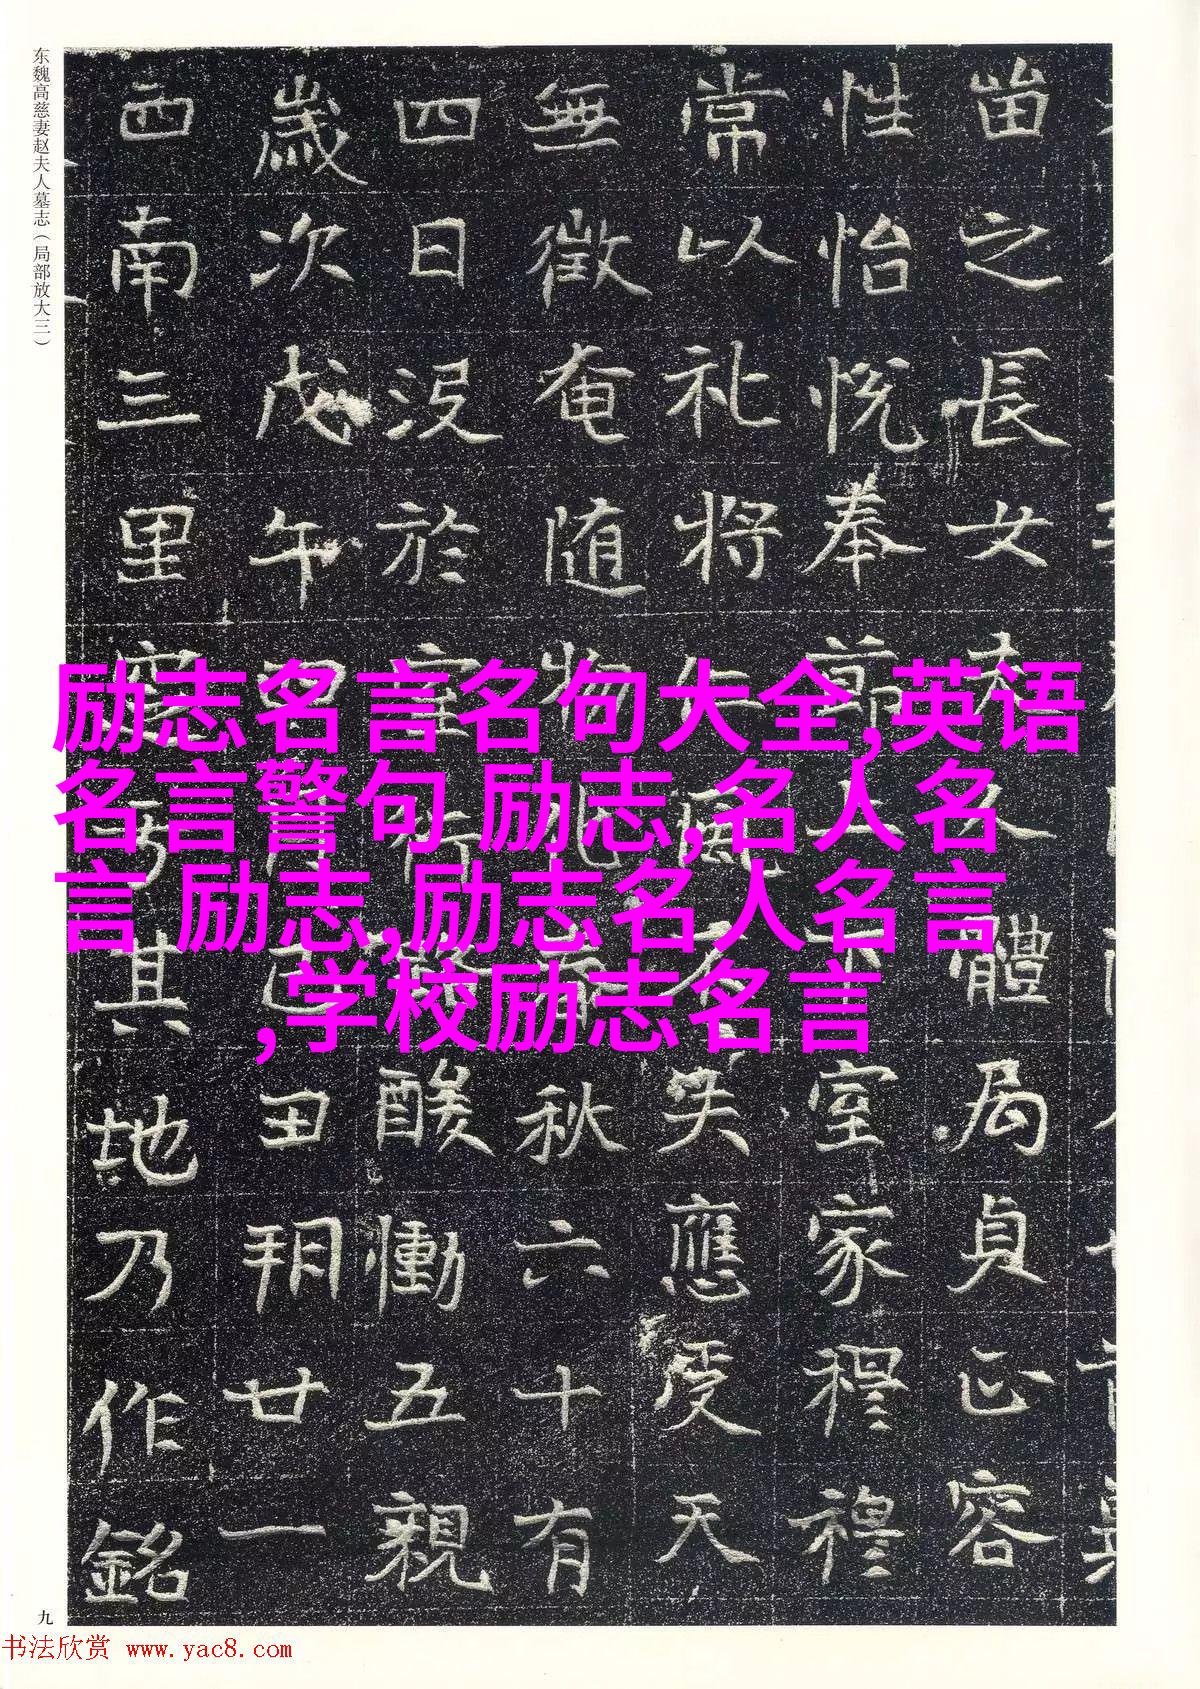 东魏高慈妻赵夫人墓志（局部放大三）
之長女 體局貞正容
性怡悦奉 室家穆穆
常以礼将仁風 失應受天
無徵奄随物化 秋六十有
四日没於 酸慟五親
歲次戊午 丑朔廿一
西南三里 其地乃作銘
励志名言名句大全,英语
名言警句 励志,名人名
言 励志,励志名人名言
,学校励志名言
九
书法欣赏 www.yac8.com